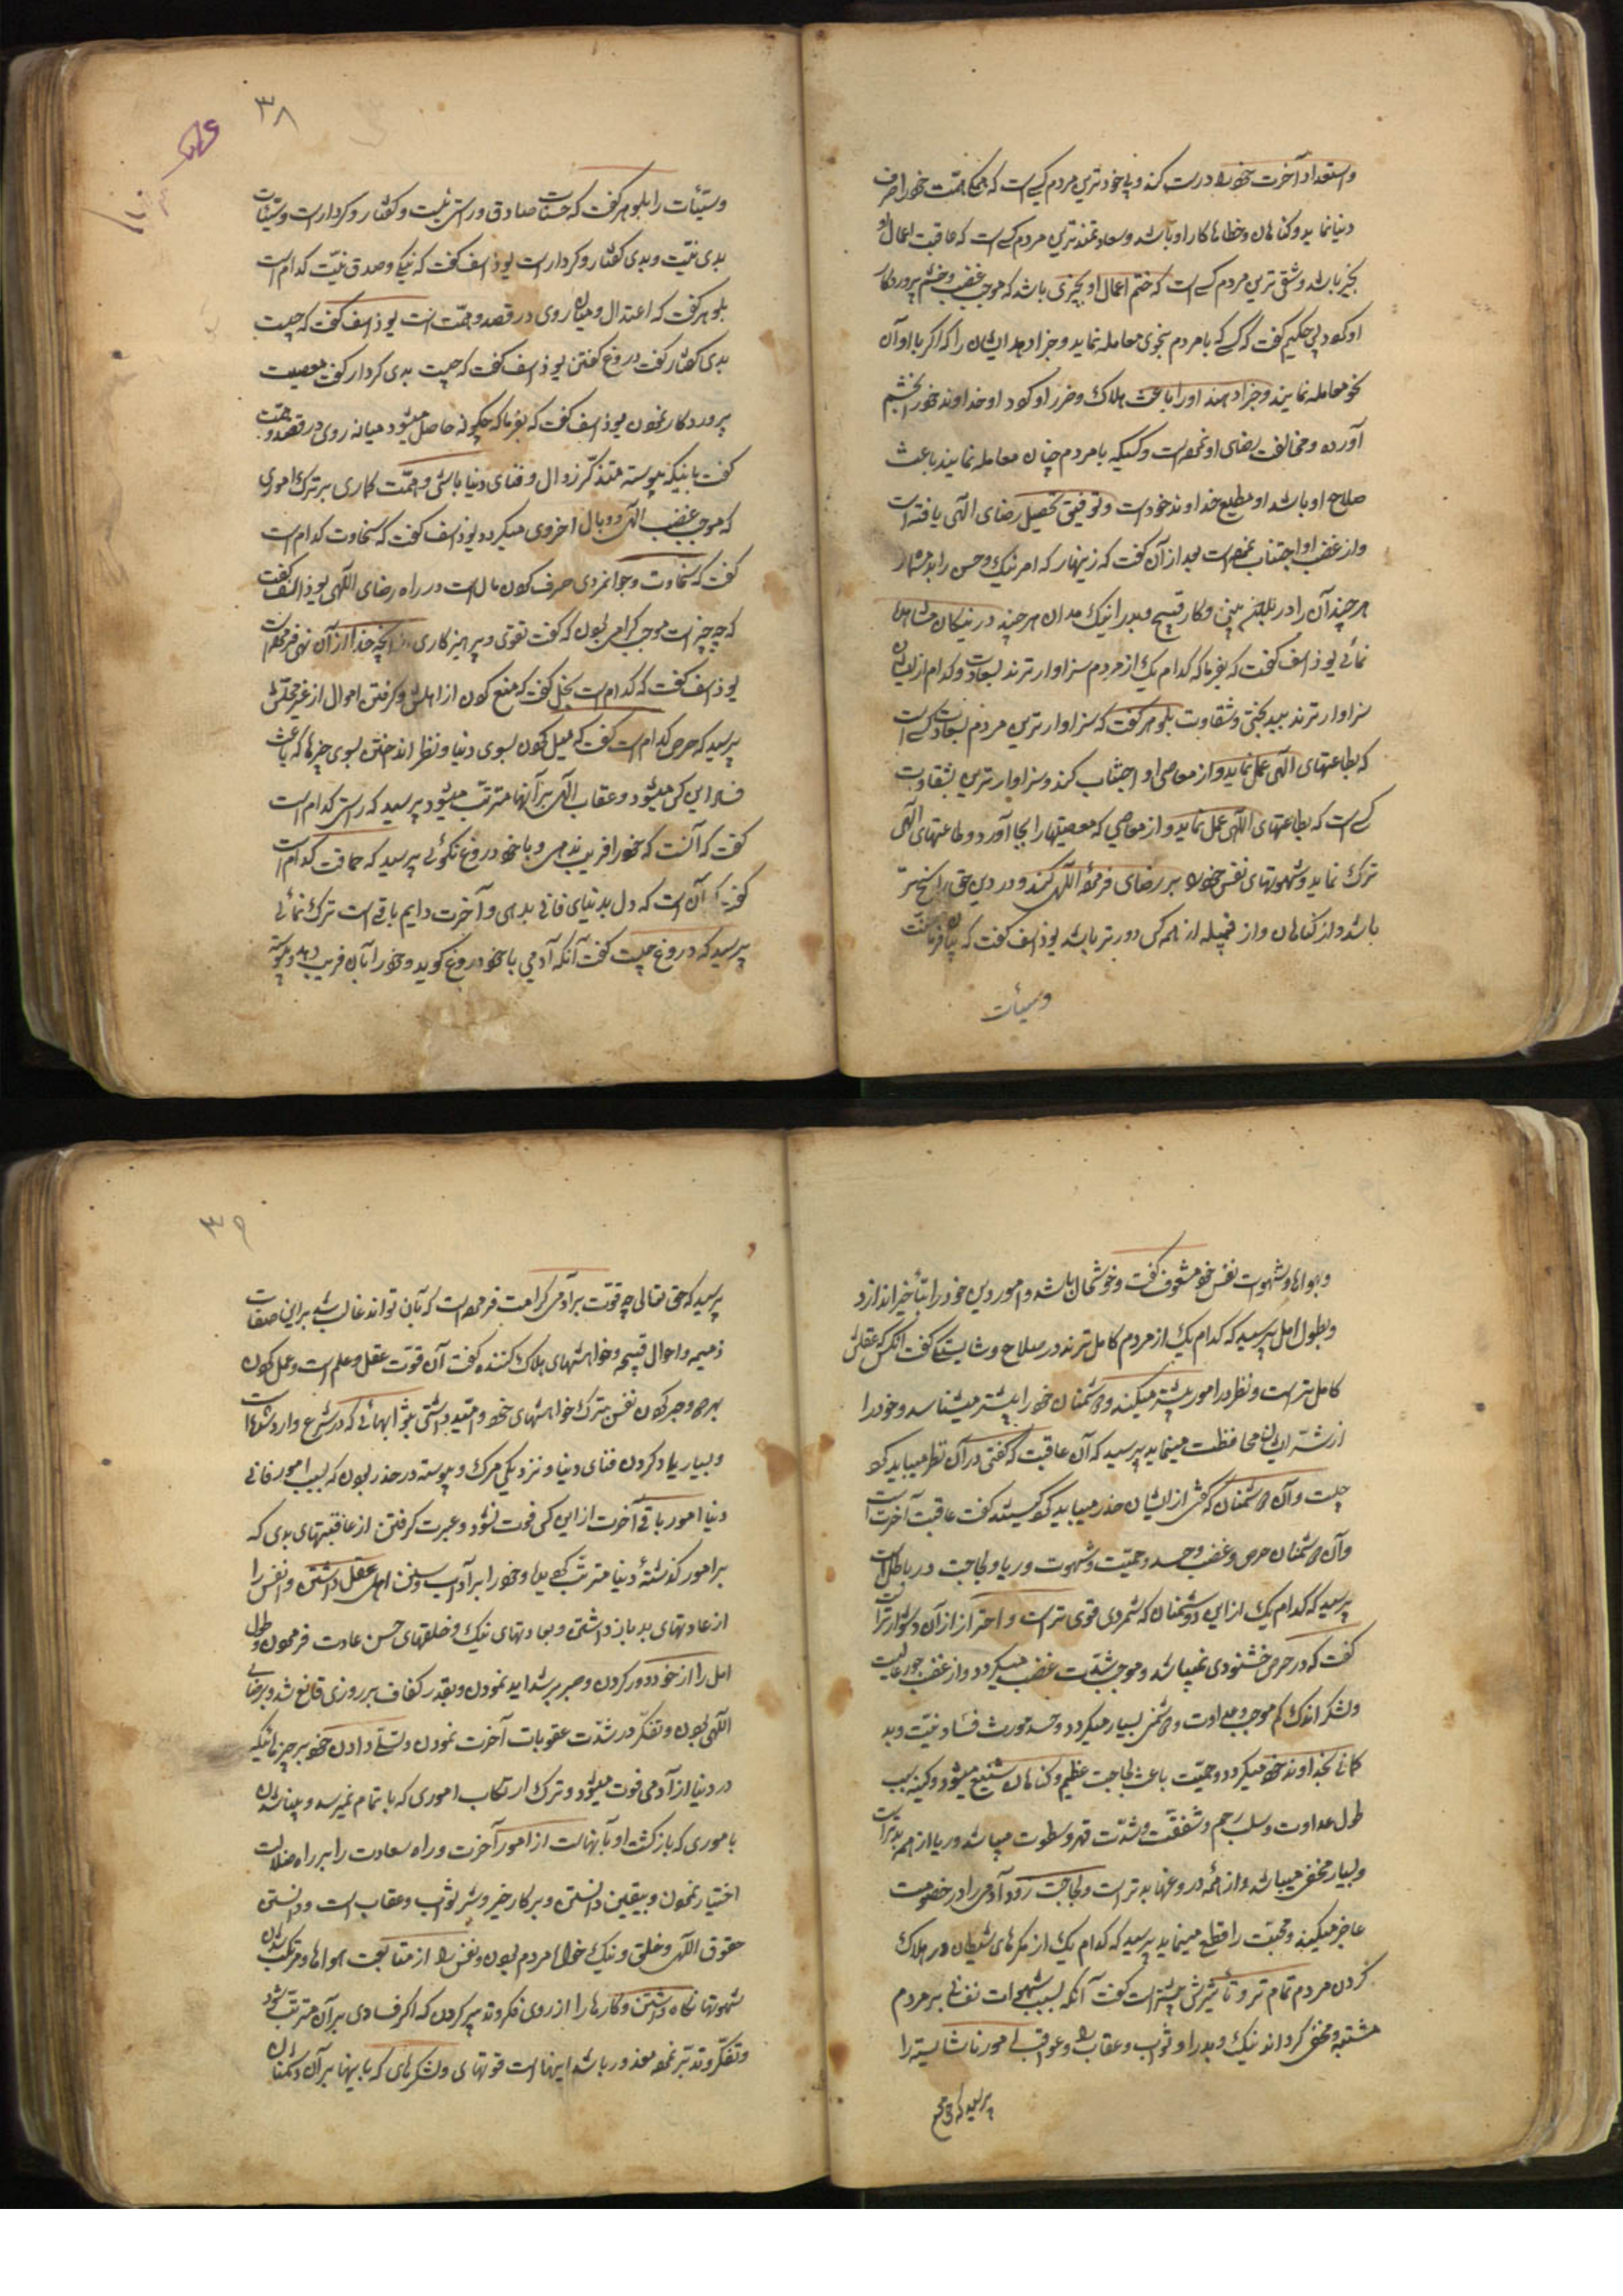 واستعداد آخرت خود را درست کند و پاخودترین مردم کسی است که همگی همت خود را صرف
دنیا نماید و گناهان و خطاها کار او باشد و سعادتمندترین مردم کسی است که عاقبت اعمال او
بخیر باشد و شقی ترین مردم کسی است که ختم اعمال او بچیزی باشد که موجب غضب و خشم پروردکار
او کردد پس حکیم کفت که کسی که با مردم بنحوی معامله نماید و جزا دهد ایشان را که اکر با او آن
نحو معامله نمایند و جزا دهند او را باعث هلاک و ضرر او کردد او خداوند خود را بخشم
آورده و مخالفت رضای او نموده است و کسیکه با مردم چنان معامله نماید باعث
صلاح او باشد او مطیع خداوند خود است و توفیق تحصیل رضای الهی یافته است
و از غضب او اجتناب نموده است بعد از آن کفت که زینهار که امر نیک و حسن را بد مشمار
هر چند آن را در بدان بینی و کار قبیح و بد را نیک مدان هر چند در نیکان مشاهده
نمائی یوذاسف کفت که بفرما که کدام یک از مردم سزاوارترند بسعادت و کدام از ایشان
سزاوارترند ببدبختی و شقاوت بلوهر کفت که سزاوارترین مردم بسعادت کسی است
که بطاعتهای الهی عمل نماید و از معاصی او اجتناب کند و سزاوارترین بشقاوت
کسی است که بطاعتهای الهی عمل نماید و از معاصی که معصیتها را بجا آورد و طاعتهای الهی
ترک نماید و شهوتهای نفس خود را بر رضای فرموده الهی کند و در دین حق راسخ تر
باشد و از کناهان و از همه کس دورتر باشد یوذاسف کفت که بفرما
وسیئات
وسیئات را بلوهر کفت که حسنات صادق و راستی نیت و کفتار و کردار است و سیئات
بدی نیت و بدی کفتار و کردار است یوذاسف کفت که نیکی و صدق نیت کدام است
بلوهر کفت که اعتدال و میانه روی در قصد و همت است یوذاسف کفت که چیست
بدی کفتار کفت دروغ کفتن یوذاسف کفت که چیست بدی کردار کفت معصیت
پروردکار نمودن یوذاسف کفت که بفرما که چکونه حاصل میشود میانه روی در قصد و همت
کفت باینکه پیوسته متذکر زوال و فنای دنیا باشی و همت کماری بر ترک اموری
که موجب غضب الهی و وبال اخروی میکردد یوذاسف کفت که سخاوت کدام است
کفت که سخاوت و جوانمردی صرف کردن مال است در راه رضای الهی یوذاسف کفت
که چه چیز است موجب کرامی بودن کفت تقوی و پرهیزکاری از آنچه خدا از آن نهی فرموده است
یوذاسف کفت که کدام است بخل کفت که منع کردن از اهلش و کرفتن اموال از غیر محلش
پرسید که حرص کدام است کفت که میل کردن بسوی دنیا و نظر انداختن بسوی چیزها که باعث
فساد این کس میشود و عقاب الهی بر آنها مترتب میشود پرسید که راستی کدام است
کفت که آنست که خود را فریب ندهی و با خود دروغ نکوئی پرسید که حماقت کدام است
کفت آن است که دل بدنیای فانی بدهی و آخرت دایم باقی است ترک نمائی
پرسید که دروغ چیست کفت آنکه آدمی با خود دروغ کوید و خود را بآن فریب دهد و پیوسته
۳۸
و بهواها و شهوات نفس خود مشعوف کفت و خوشحال باشد و امور دین خود را بتأخیر اندازد
و بطول امل پرسید که کدام یک از مردم کامل ترند در صلاح و شایستگی کفت آنکس که عقلش
کامل تر است و نظر در امور بیشتر میکند و دشمنان خود را بیشتر میشناسد و خود را
از شر ایشان محافظت مینماید پرسید که آن عاقبت که کفتی در آن نظر میباید کرد
چیست و آن دشمنان که کفتی از ایشان حذر میباید کرد کیستند کفت عاقبت آخرت است
و آن دشمنان حرص و غضب و حسد و حمیت و شهوت و ریا و لجاجت در باطل است
پرسید که کدام یک از این دشمنان که شمردی قوی تر است و احتراز از آن دشوارتر است
کفت که در حرص خشنودی نمیباشد و موجب شدت غضب میکردد و از غضب جور
و لشکر اندک کم موجب و عداوت و دشمنی بسیار میکردد و حسد مورث فساد نیت و بد
کمانی بخداوند خود میکردد و حمیت باعث لجاجت عظیم و کناهان شنیع میشود و کینه سبب
طول عداوت و سلب رحم و شفقت و شدت قهر و سطوت میباشد و ریا از همه بدتر است
و بسیار مخفی میباشد و از همهٔ دروغها بدتر است و لجاجت زود آدمی را در خصومت
عاجز میکند و محبت را قطع مینماید پرسید که کدام یک از مکرهای شیطان در هلاک
کردن مردم تمام تر و تأثیرش بیشتر است کفت آنکه بسبب شهوات نفسانی بر مردم
مشتبه و مخفی کرداند نیک و بد را و ثواب و عقاب را و عواقب امور ناشایسته را
پرسید که حق
پرسید که حق تعالی چه قوت بر آدمی کرامت فرموده است که بآن تواند غالب شد بر این صفات
ذمیمه و احوال قبیحه و خواهشهای هلاک کننده کفت آن قوت عقل و علم است و عمل کردن
بهر دو و جبر کردن نفس بترک خواهشهای خود و امید داشتن بثوابهائی که در شرع وارد شده است
و بسیار یاد کردن فنای دنیا و نزدیکی مرک و پیوسته در حذر بودن که بسبب امور فانی
دنیا امور باقی آخرت از این کس فوت نشود و عبرت کرفتن از عاقبتهای بدی که
بر امور کذشتهٔ دنیا مترتب کردید و خود را بر آداب و سنن اهل عقل داشتن و نفس را
از عادتهای بد باز داشتن و بعادتهای نیک و خلقهای حسن عادت فرمودن و طول
امل را از خود دور کردن و صبر بر شداید نمودن و بقدر کفاف هر روزی قانع شدن و برضای
الهی بودن و تفکر در شدت عقوبات آخرت نمودن و تسلی دادن خود بر چیزهائیکه
در دنیا از آدمی فوت میشود و ترک ارتکاب اموری که باتمام نمیرسد و بینا شدن
باموری که بازکشت او بآنهاست از امور آخرت و راه سعادت را بر راه ضلالت
اختیار نمودن و بیقین دانستن و بر کار خیر و شر ثواب و عقاب است و دانستن
حقوق الهی و خلق و نیک خواه مردم بودن و نفس را از متابعت هواها و مرتکب شدن
شهوتها نکاه داشتن و کارها را از روی فکر و تدبیر کردن که اکر فسادی بر آن مترتب شود
و تفکر و تدبر نموده معذور باشد اینها است قوتهای و لشکرهای که باینها بر آن دشمنان
۳۹